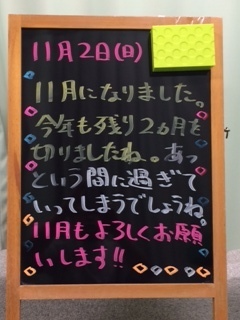 11月2日(日)
11月になりました。
今年も残り2ヵ月を
切りましたね。あっ
という間に過ぎて
いってしまうでしょうね。
11月もよろしくお願
いします!!